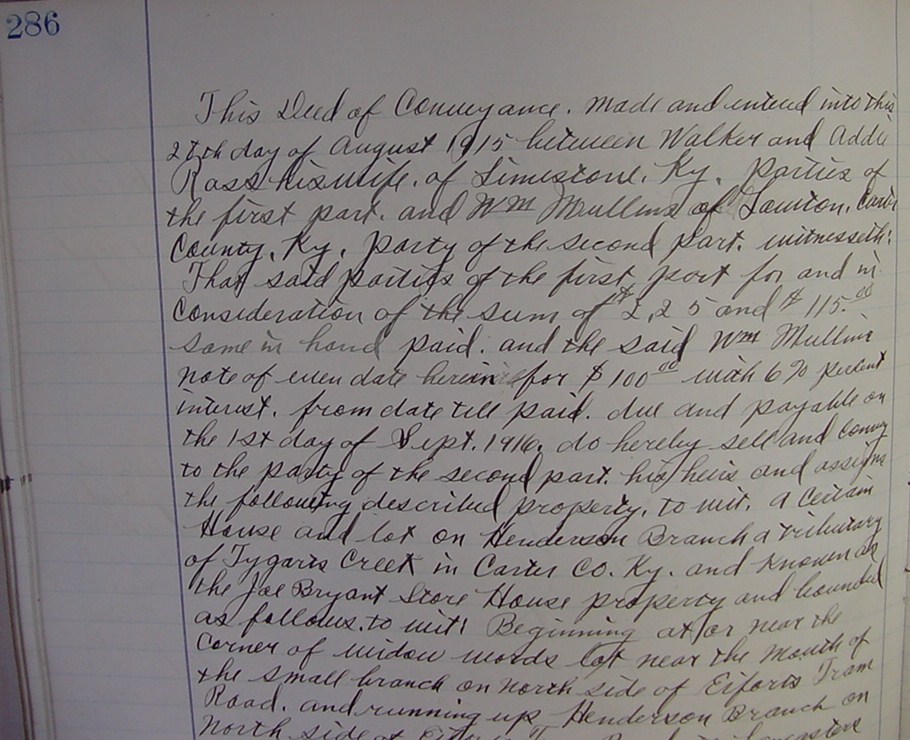 286
This Deed of Conveyance. Made and entered into this
27th day of August 1915 between Walker and Addie
Ross his wife. of Limestone. Ky. parties of
the first part. and Wm Mullins of Lawton. Carter
County. Ky. party of the second part. witnesseth:
That said parties of the first part for and in
consideration of the sum of $225 and $115.00
same in hand paid. and the said Wm Mullins
note of even date herein for $100.00 with 6% percent
interest. from date till paid. due and payable on
the 1st day of Sept. 1916. do hereby sell and convey
to the party of the second part. his heirs and assigns
the following described property. to wit. a certain
House and lot on Henderson Branch a tributary
of Tygarts Creek in Carter Co. Ky. and known as
the Joe Bryant Store House property and bounded
as follows. to wit! Beginning at or near the
corner of widow words lot near the mouth of
the small branch on north side of Eiforts Tram
Road. and running up Henderson Branch on
North side of